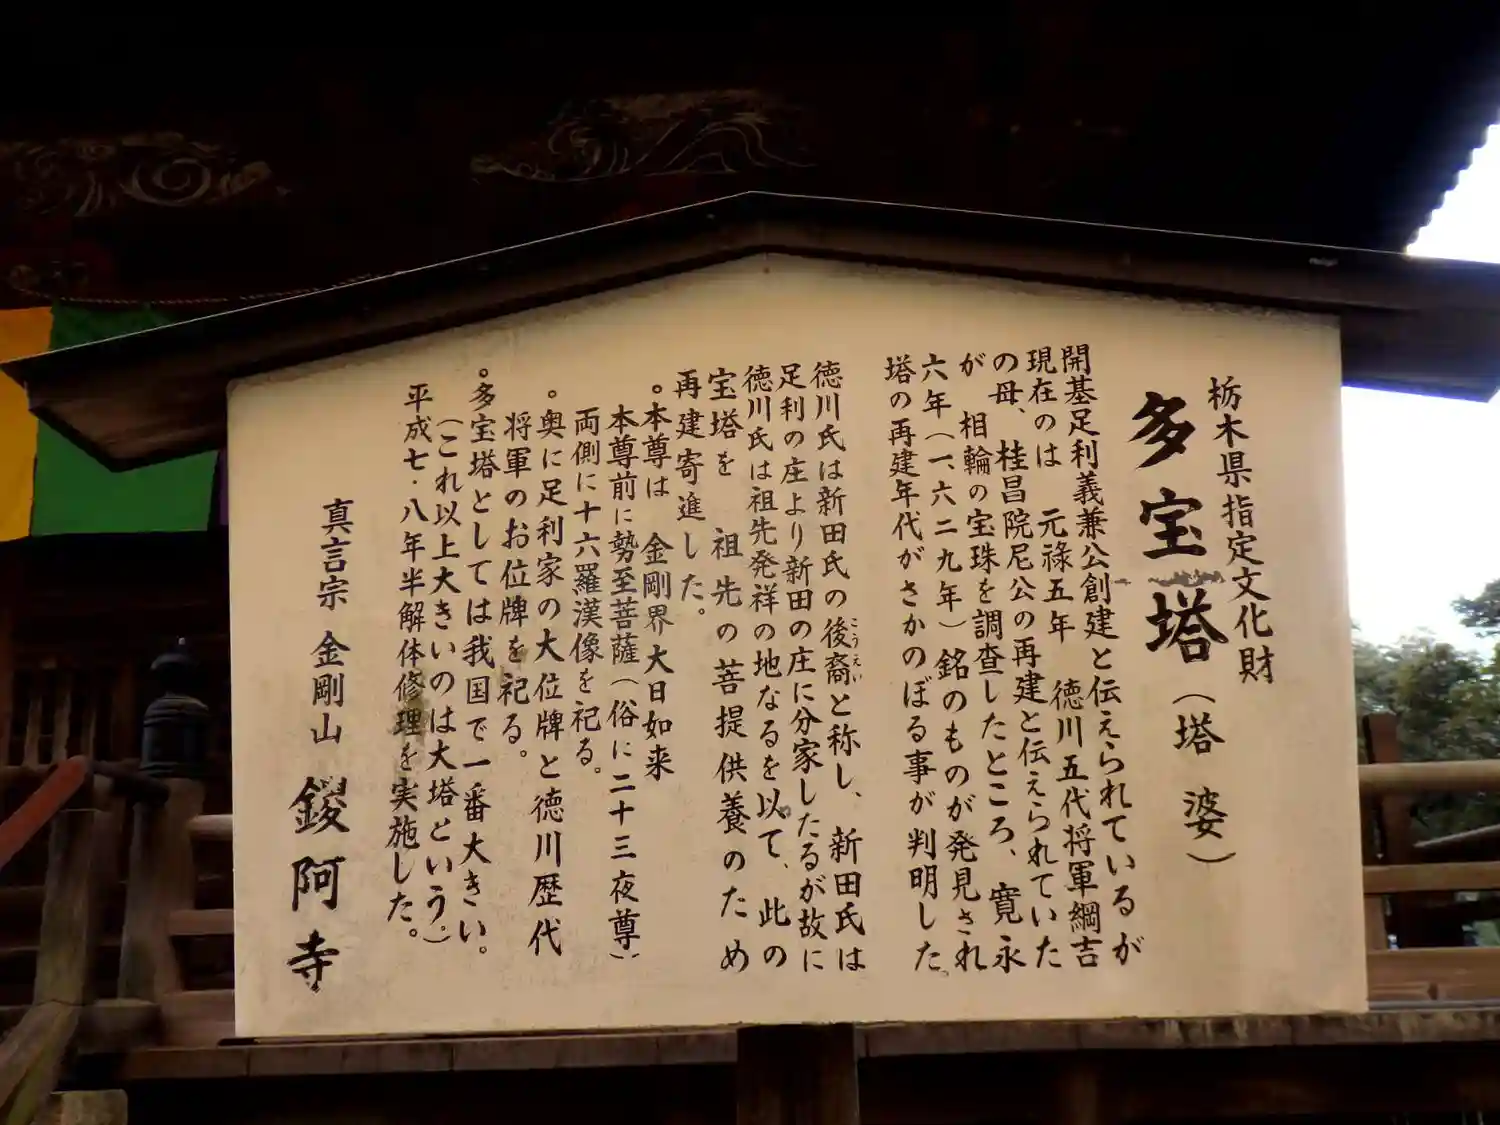 栃木県指定文化財
多宝塔（塔婆）
開基足利義兼公創建と伝えられているが
現在のは 元禄五年 徳川五代将軍綱吉
の母、桂昌院尼公の再建と伝えられていた
が 相輪の宝珠を調査したところ、寛永
六年（一、六二九年）銘のものが発見され
塔の再建年代がさかのぼる事が判明した。
徳川氏は新田氏の後裔と称し、新田氏は
こうえい
足利の庄より新田の庄に分家したるが故に
徳川氏は祖先発祥の地なるを以て、此の
宝塔を 祖先の菩提供養のため
再建寄進した。
。本尊は 金剛界大日如来
本尊前に勢至菩薩（俗に二十三夜尊）
両側に十六羅漢像を祀る。
。奥に足利家の大位牌と徳川歴代
将軍のお位牌を祀る。
。多宝塔としては我国で一番大きい。
（これ以上大きいのは大塔という。）
平成七・八年半解体修理を実施した。
真言宗 金剛山 鑁阿寺